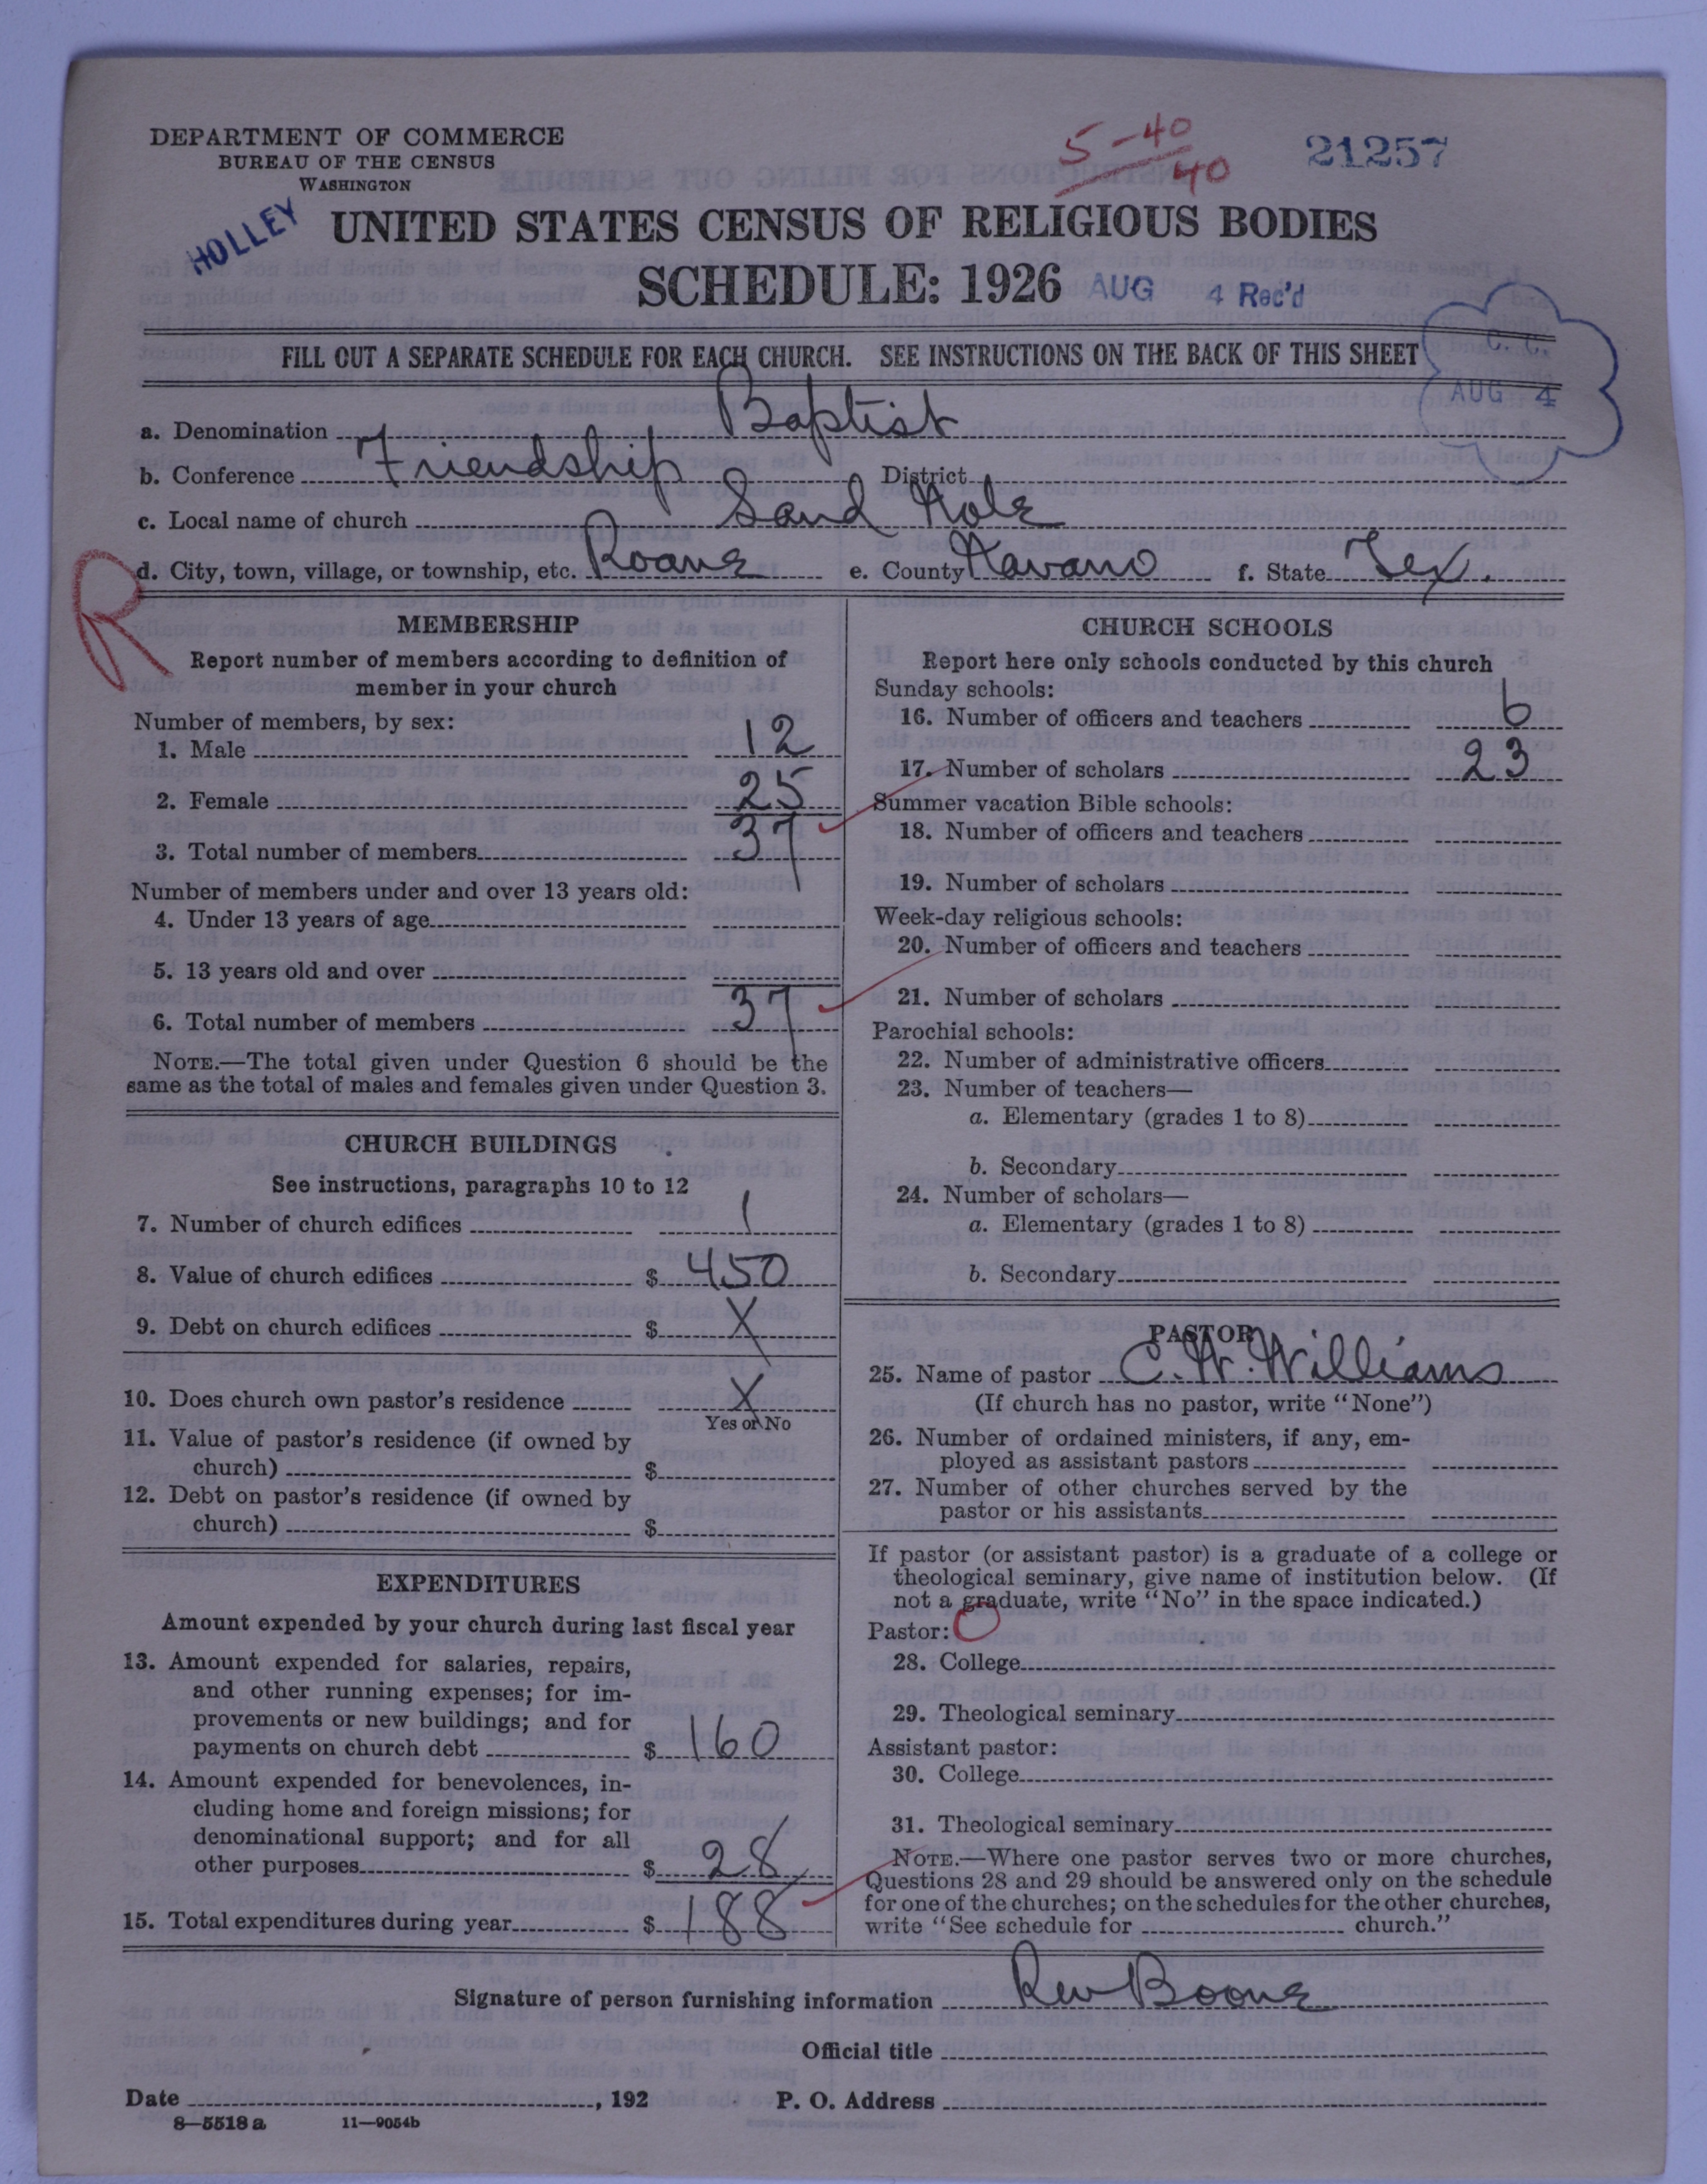 DEPARTMENT OF COMMERCE
BUREAU OF THE CENSUS
WASHINGTON
5-40
40
21257
HOLLEY
UNITED STATES CENSUS OF RELIGIOUS BODIES
SCHEDULE: 1926 AUG 4 Rec'd
FILL OUT A SEPARATE SCHEDULE FOR EACH CHURCH. SEE INSTRUCTIONS ON THE BACK OF THIS SHEET
C. C.
AUG 4
a. Denomination Baptist
b. Conference Friendship District
c. Local name of church Sand Hole
d. City, town, village, or township, etc. Roane e. County Navaro f. State Tex.
R
MEMBERSHIP
Report number of members according to definition of
member in your church
Number of members, by sex:
1. Male 12
2. Female 25
3. Total number of members 37
Number of members under and over 13 years old:
4. Under 13 years of age
5. 13 years old and over
6. Total number of members 37
NOTE.—The total given under Question 6 should be the
same as the total of males and females given under Question 3.
CHURCH BUILDINGS
See instructions, paragraphs 10 to 12
7. Number of church edifices 1
8. Value of church edifices $ 450
9. Debt on church edifices $ X
10. Does church own pastor's residence X
Yes or No
11. Value of pastor's residence (if owned by
church) $
12. Debt on pastor's residence (if owned by
church) $
EXPENDITURES
Amount expended by your church during last fiscal year
13. Amount expended for salaries, repairs,
and other running expenses; for im-
provements or new buildings; and for
payments on church debt $ 160
14. Amount expended for benevolences, in-
cluding home and foreign missions; for
denominational support; and for all
other purposes $ 28
15. Total expenditures during year $ 188
CHURCH SCHOOLS
Report here only schools conducted by this church
Sunday schools:
16. Number of officers and teachers 6
17. Number of scholars 23
Summer vacation Bible schools:
18. Number of officers and teachers
19. Number of scholars
Week-day religious schools:
20. Number of officers and teachers
21. Number of scholars
Parochial schools:
22. Number of administrative officers
23. Number of teachers—
a. Elementary (grades 1 to 8)
b. Secondary
24. Number of scholars—
a. Elementary (grades 1 to 8)
b. Secondary
PASTOR
25. Name of pastor C. W. Williams
(If church has no pastor, write "None")
26. Number of ordained ministers, if any, em-
ployed as assistant pastors
27. Number of other churches served by the
pastor or his assistants
If pastor (or assistant pastor) is a graduate of a college or
theological seminary, give name of institution below. (If
not a graduate, write "No" in the space indicated.)
Pastor: O
28. College
29. Theological seminary
Assistant pastor:
30. College
31. Theological seminary
NOTE.—Where one pastor serves two or more churches,
Questions 28 and 29 should be answered only on the schedule
for one of the churches; on the schedules for the other churches,
write "See schedule for church."
Signature of person furnishing information Rev Boone
Official title
Date , 192 P. O. Address
8—5518 a 11—9054b